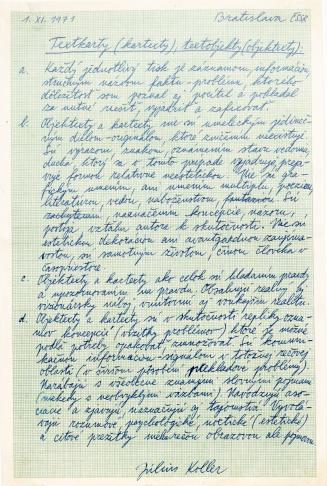 1. XI. 1971 Bratislava ČSSR
Textkarty (kartexty), textobjekty (objektexty):
a. Každý jednotlivý tisk je záznamom, informáciou,
stručným názvom faktu-problému, ktorého
dôležitosť som poznal aj pocítil a pokladal
za nutné riešiť, vyjadriť a zafixovať.
b. Objektexty a kartexty nie sú umeleckým jedineč-
ným dielom-originálom, ktoré zničením neexistuje.
Sú výrazom, znakom, oznamením stavu vedomia,
ducha, ktorý sa v tomto prípade vyjadruje, prepra-
vuje formou relatívne neestetickou. Nie sú gra-
fickým umením, ani umením multiplu, poéziou,
literatúrou, vedou, náboženstvom, fantáziou. Sú
zachytením, naznačením koncepcie, názoru,
postoja, vzťahu autora k skutočnosti. Nie sú
estetickou dekoráciou ani avantgardnou zaujíma-
vosťou, sú samotným životom, činom človeka v
časopriestore.
c. Objektexty a kartexty ako celok sú hľadaním pravdy
a upozorňovaním na pravdu. Obsahujú reálny aj
vnútorný aj vonkajšiu realitu.
d. Objektexty a kartexty sú v skutočnosti repliky ozna-
mov koncepcií (všetky problémov) ktoré je možné
podľa potreby opakovať, zmnožovať. Sú komuni-
kačnou informáciou-signálom v totožnej rečovej
oblasti (v širšom pôsobení prekladové problémy).
Narábajú s všeobecne známymi slovnými pojmami
(niekedy s neobvyklými väzbami). Navodzujú aso-
ciácie a zjavujú, naznačujú aj tajomstvá. Vyvolá-
vajú rozumové, psychologické, noetické (estetické)
a citové prežitky nielen rečou obrazovou ale pojmovou.
Július Koller